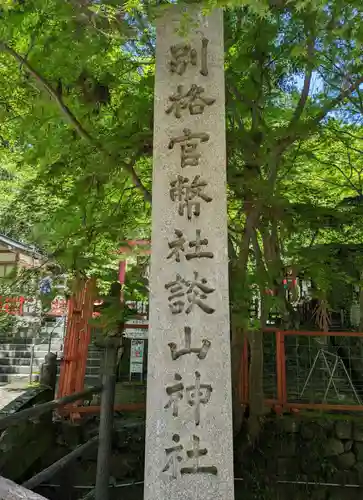 別格官幣社談山神社